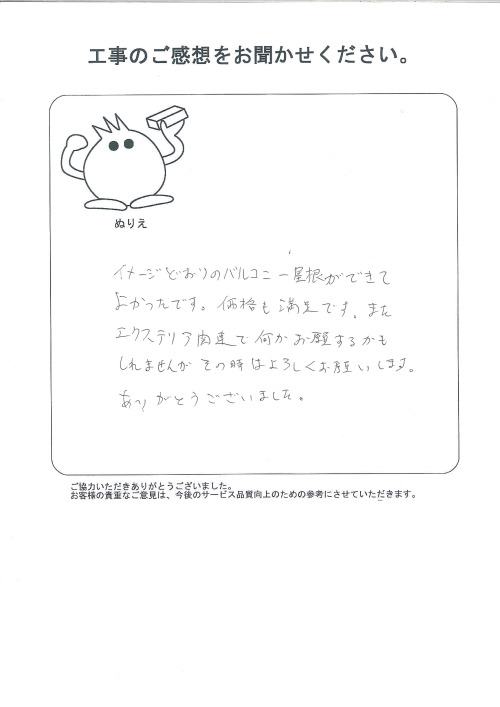 工事のご感想をお聞かせください。
ぬりえ
イメージどおりのバルコニー屋根ができて
よかったです。価格も満足です。また
エクステリア関連で何かお願するかも
しれませんが その時はよろしくお願いします。
ありがとうございました。
ご協力いただきありがとうございました。
お客様の貴重なご意見は、今後のサービス品質向上のための参考にさせていただきます。